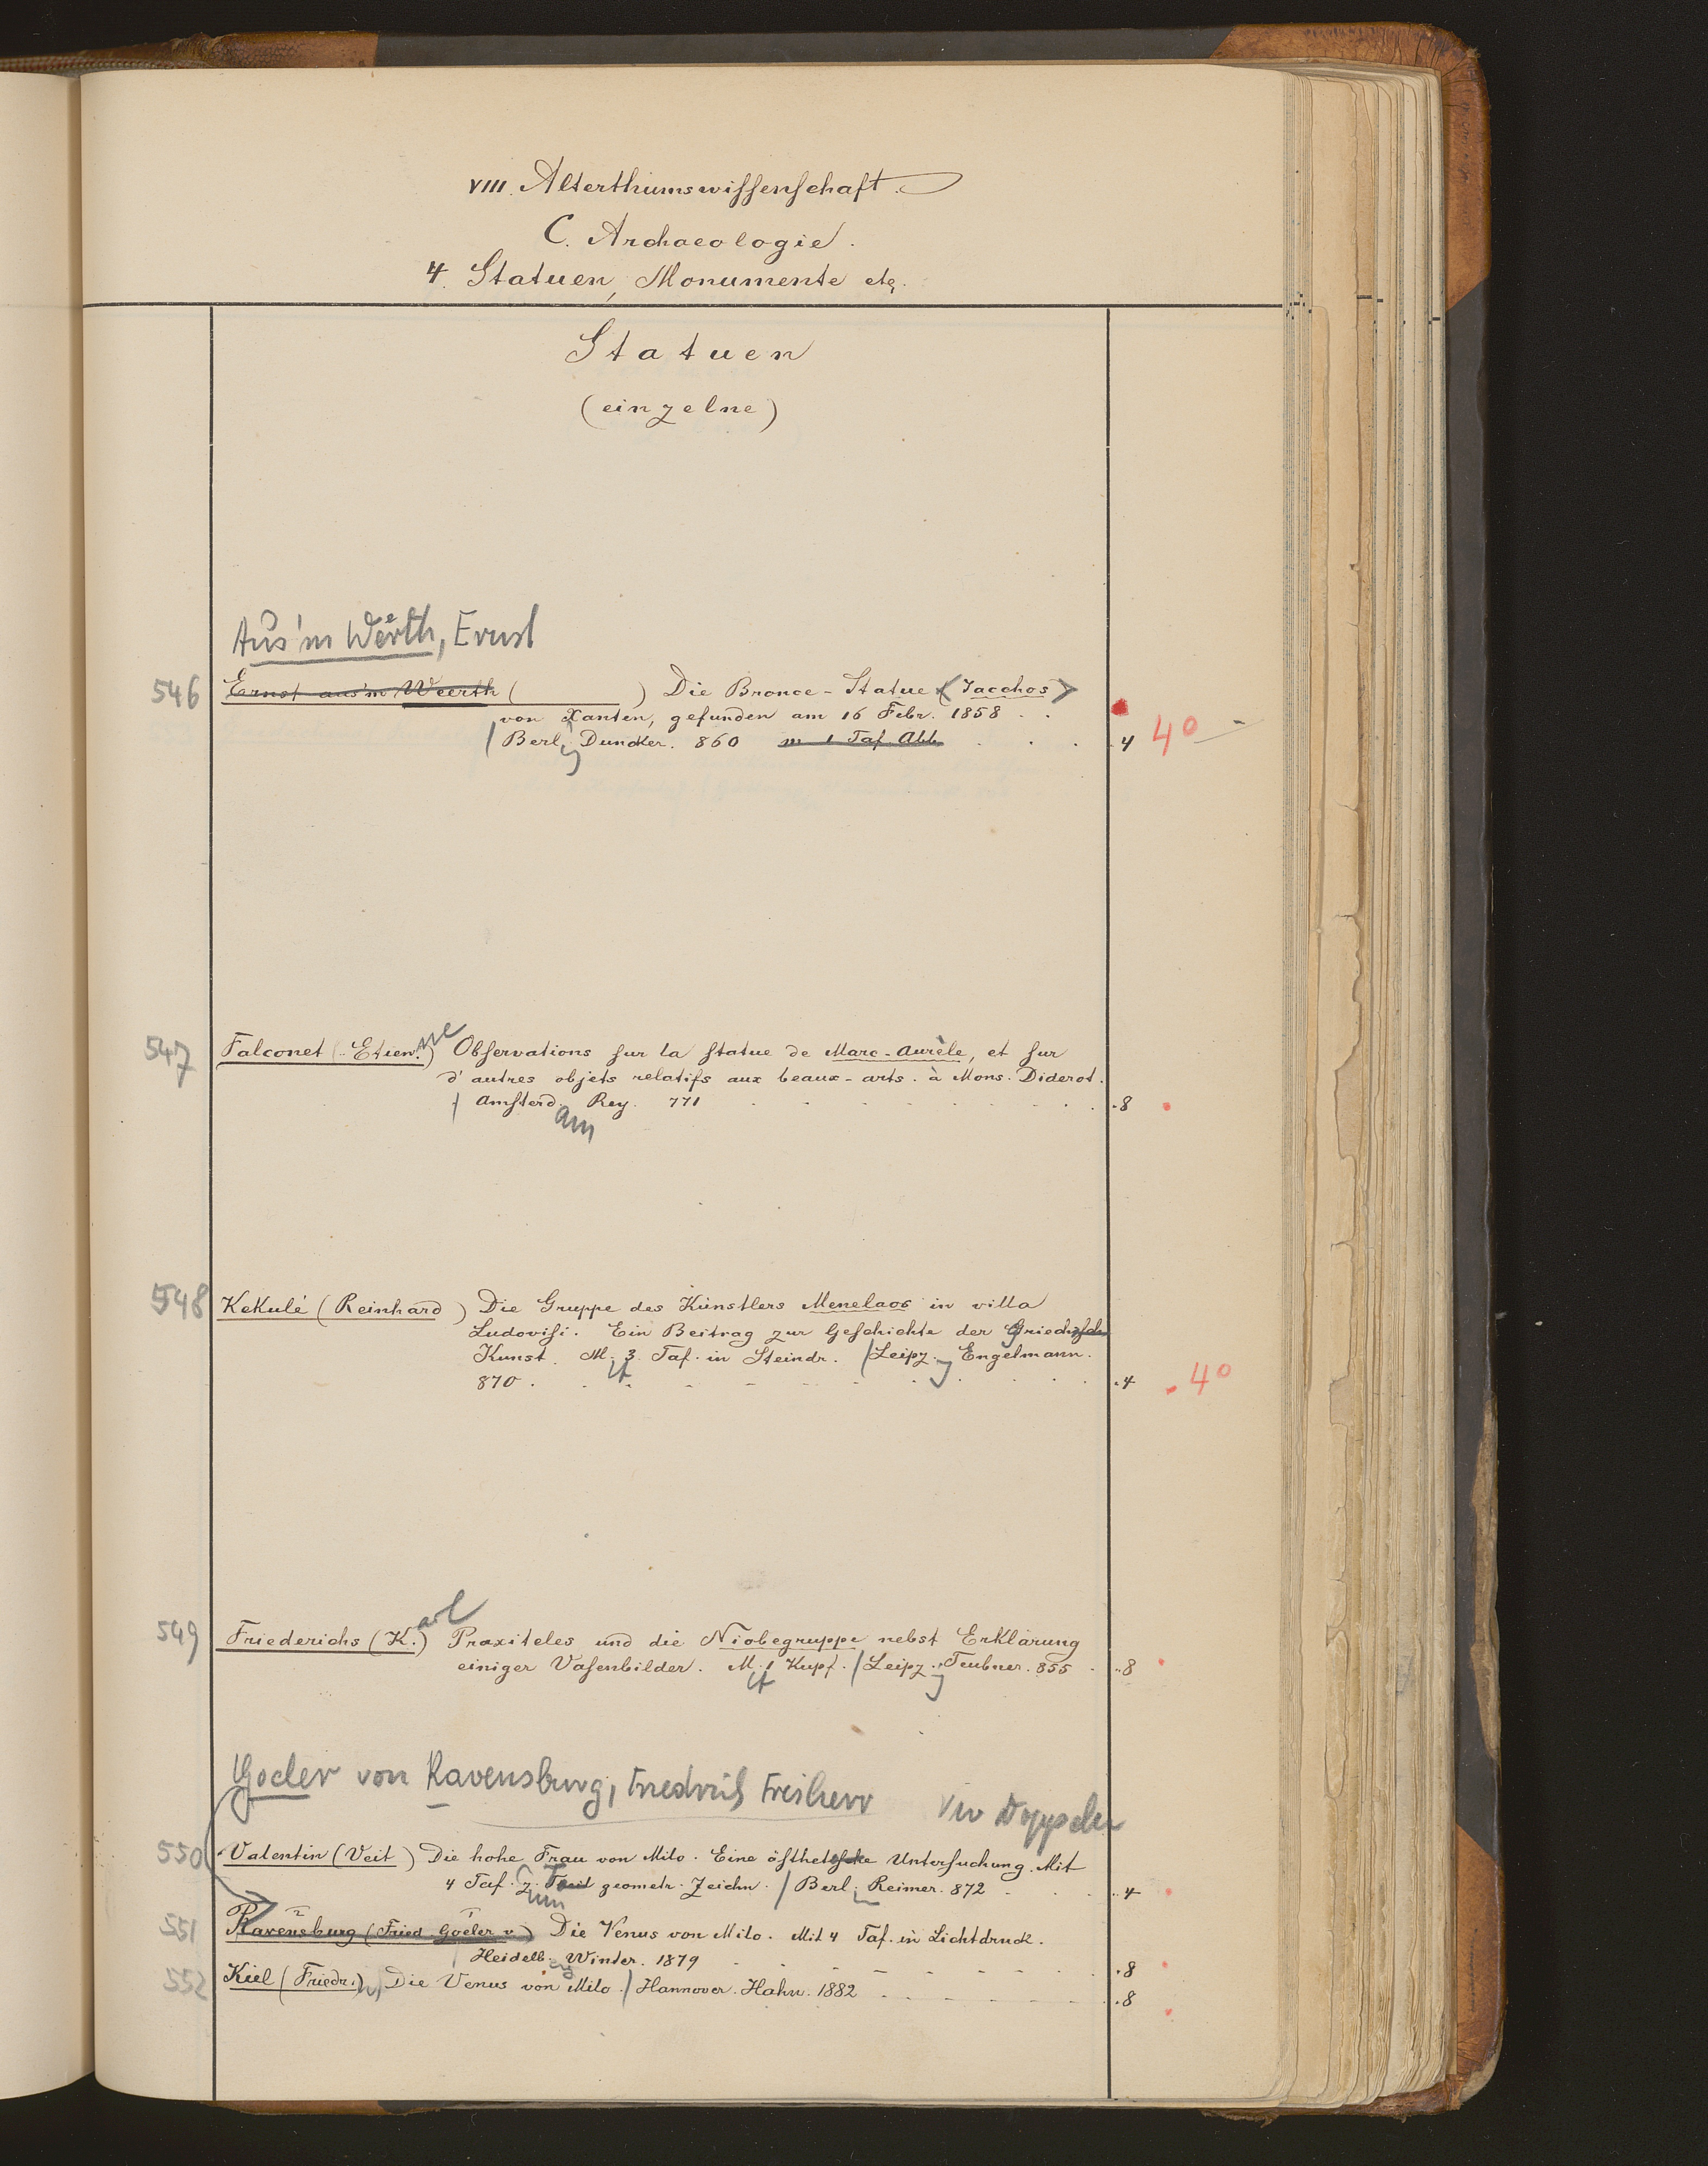 VIII. Alterthumswissenschaft.
C. Archaeologie.
4. Statuen, Monumente etc.
Statuen
(einzelne)
Aus'm Weerth, Ernst
546 Ernst aus'm Weerth ( ) Die Bronce-Statue <Jacchos>
von Xanten, gefunden am 16 Febr. 1858 . .
| Berl. Duncker. 860 m 1 Taf. Abb. . . . 4 4°
547 Falconet (Etien.nne) Observations sur la statue de Marc-Aurèle, et sur
d'autres objets relatifs aux beaux-arts. à Mons. Diderot.
| Amsterd.am Rey. 771 . 8
548 Kekulé (Reinhard) Die Gruppe des Künstlers Menelaos in villa
Ludovisi. Ein Beitrag zur Geschichte der Griechische
Kunst. M. 3 Taf. in Steindr. | Leipz. Engelmann.
870 . . 4 . 4°
549 Friederichs (K.arl) Praxiteles und die Niobegruppe nebst Erklärung
einiger Vasenbilder. M. 1 Kupf. | Leipz. Teubner. 855 . . 8
Goeler von Ravensburg, Friedrich Freiherr
550 Valentin (Veit) Die hohe Frau von Milo. Eine ästhetische Untersuchung. Mit
4 Taf. z. geometr. Zeichn. | Berl. Reimer. 872 . . 4
551 Ravensburg (Fried. Goeler v.) Die Venus von Milo. Mit 4 Taf. in Lichtdruck.
| Heidelb. Winter. 1879 . 8
552 Kiel (Friedr.) Die Venus von Milo. | Hannover. Hahn. 1882 . 8